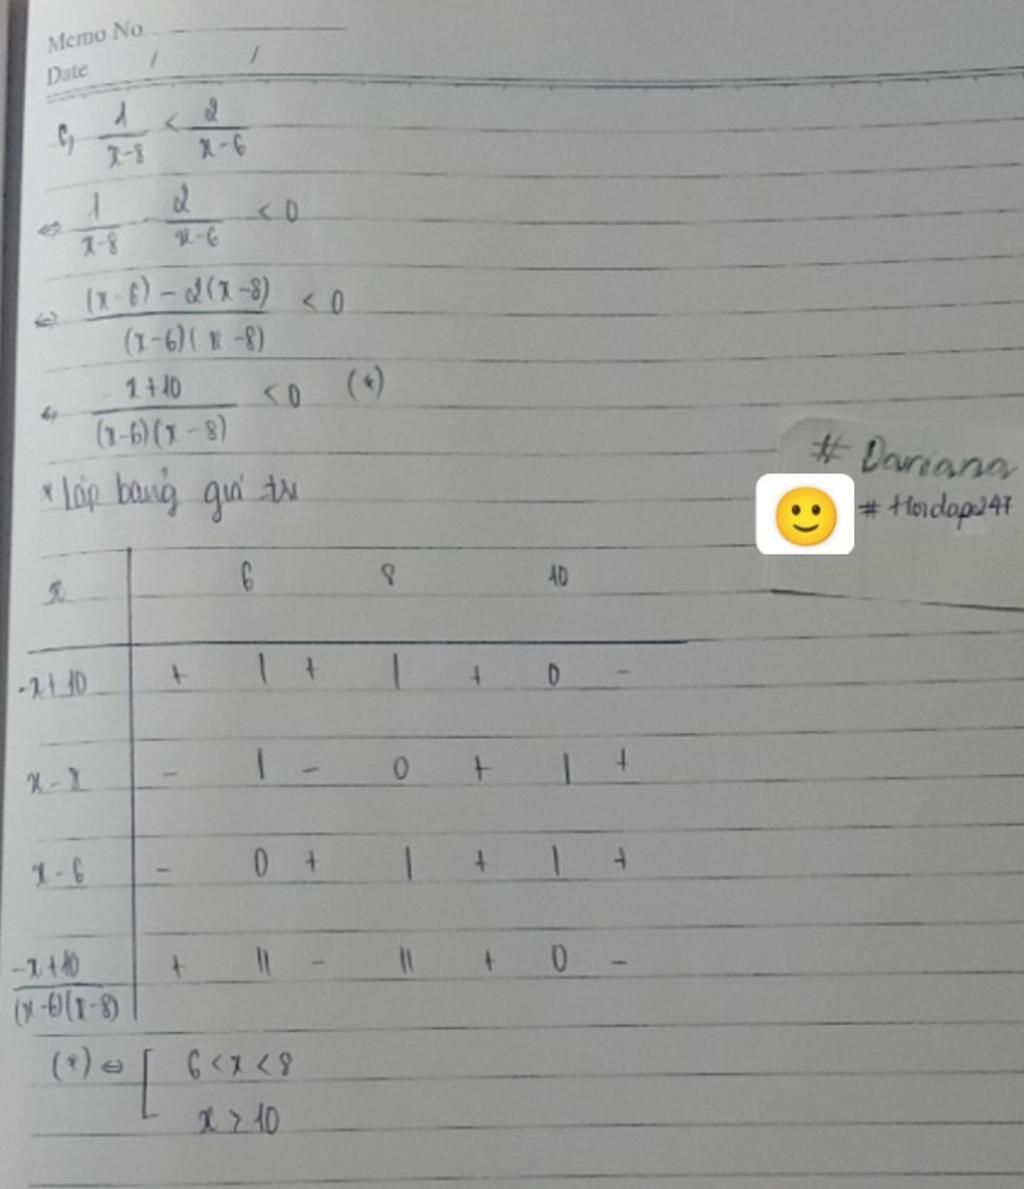 Memo No.
Date / /
c, 1/(x-8) < 2/(x-6)
⇔ 1/(x-8) 2/(x-6) < 0
⇔ ((x-6) - 2(x-8))/((x-6)(x-8)) < 0
⇔ (-x+10)/((x-6)(x-8)) < 0 (*)
# Dariana
* lập bảng giá trị
# Hoidap247
x 6 8 10
-x+10 + | + | + 0 -
x-8 - | - 0 + | +
x-6 - 0 + | + | +
(-x+10)/((x-6)(x-8)) + || - || + 0 -
(*) ⇔ [ 6 < x < 8
x > 10